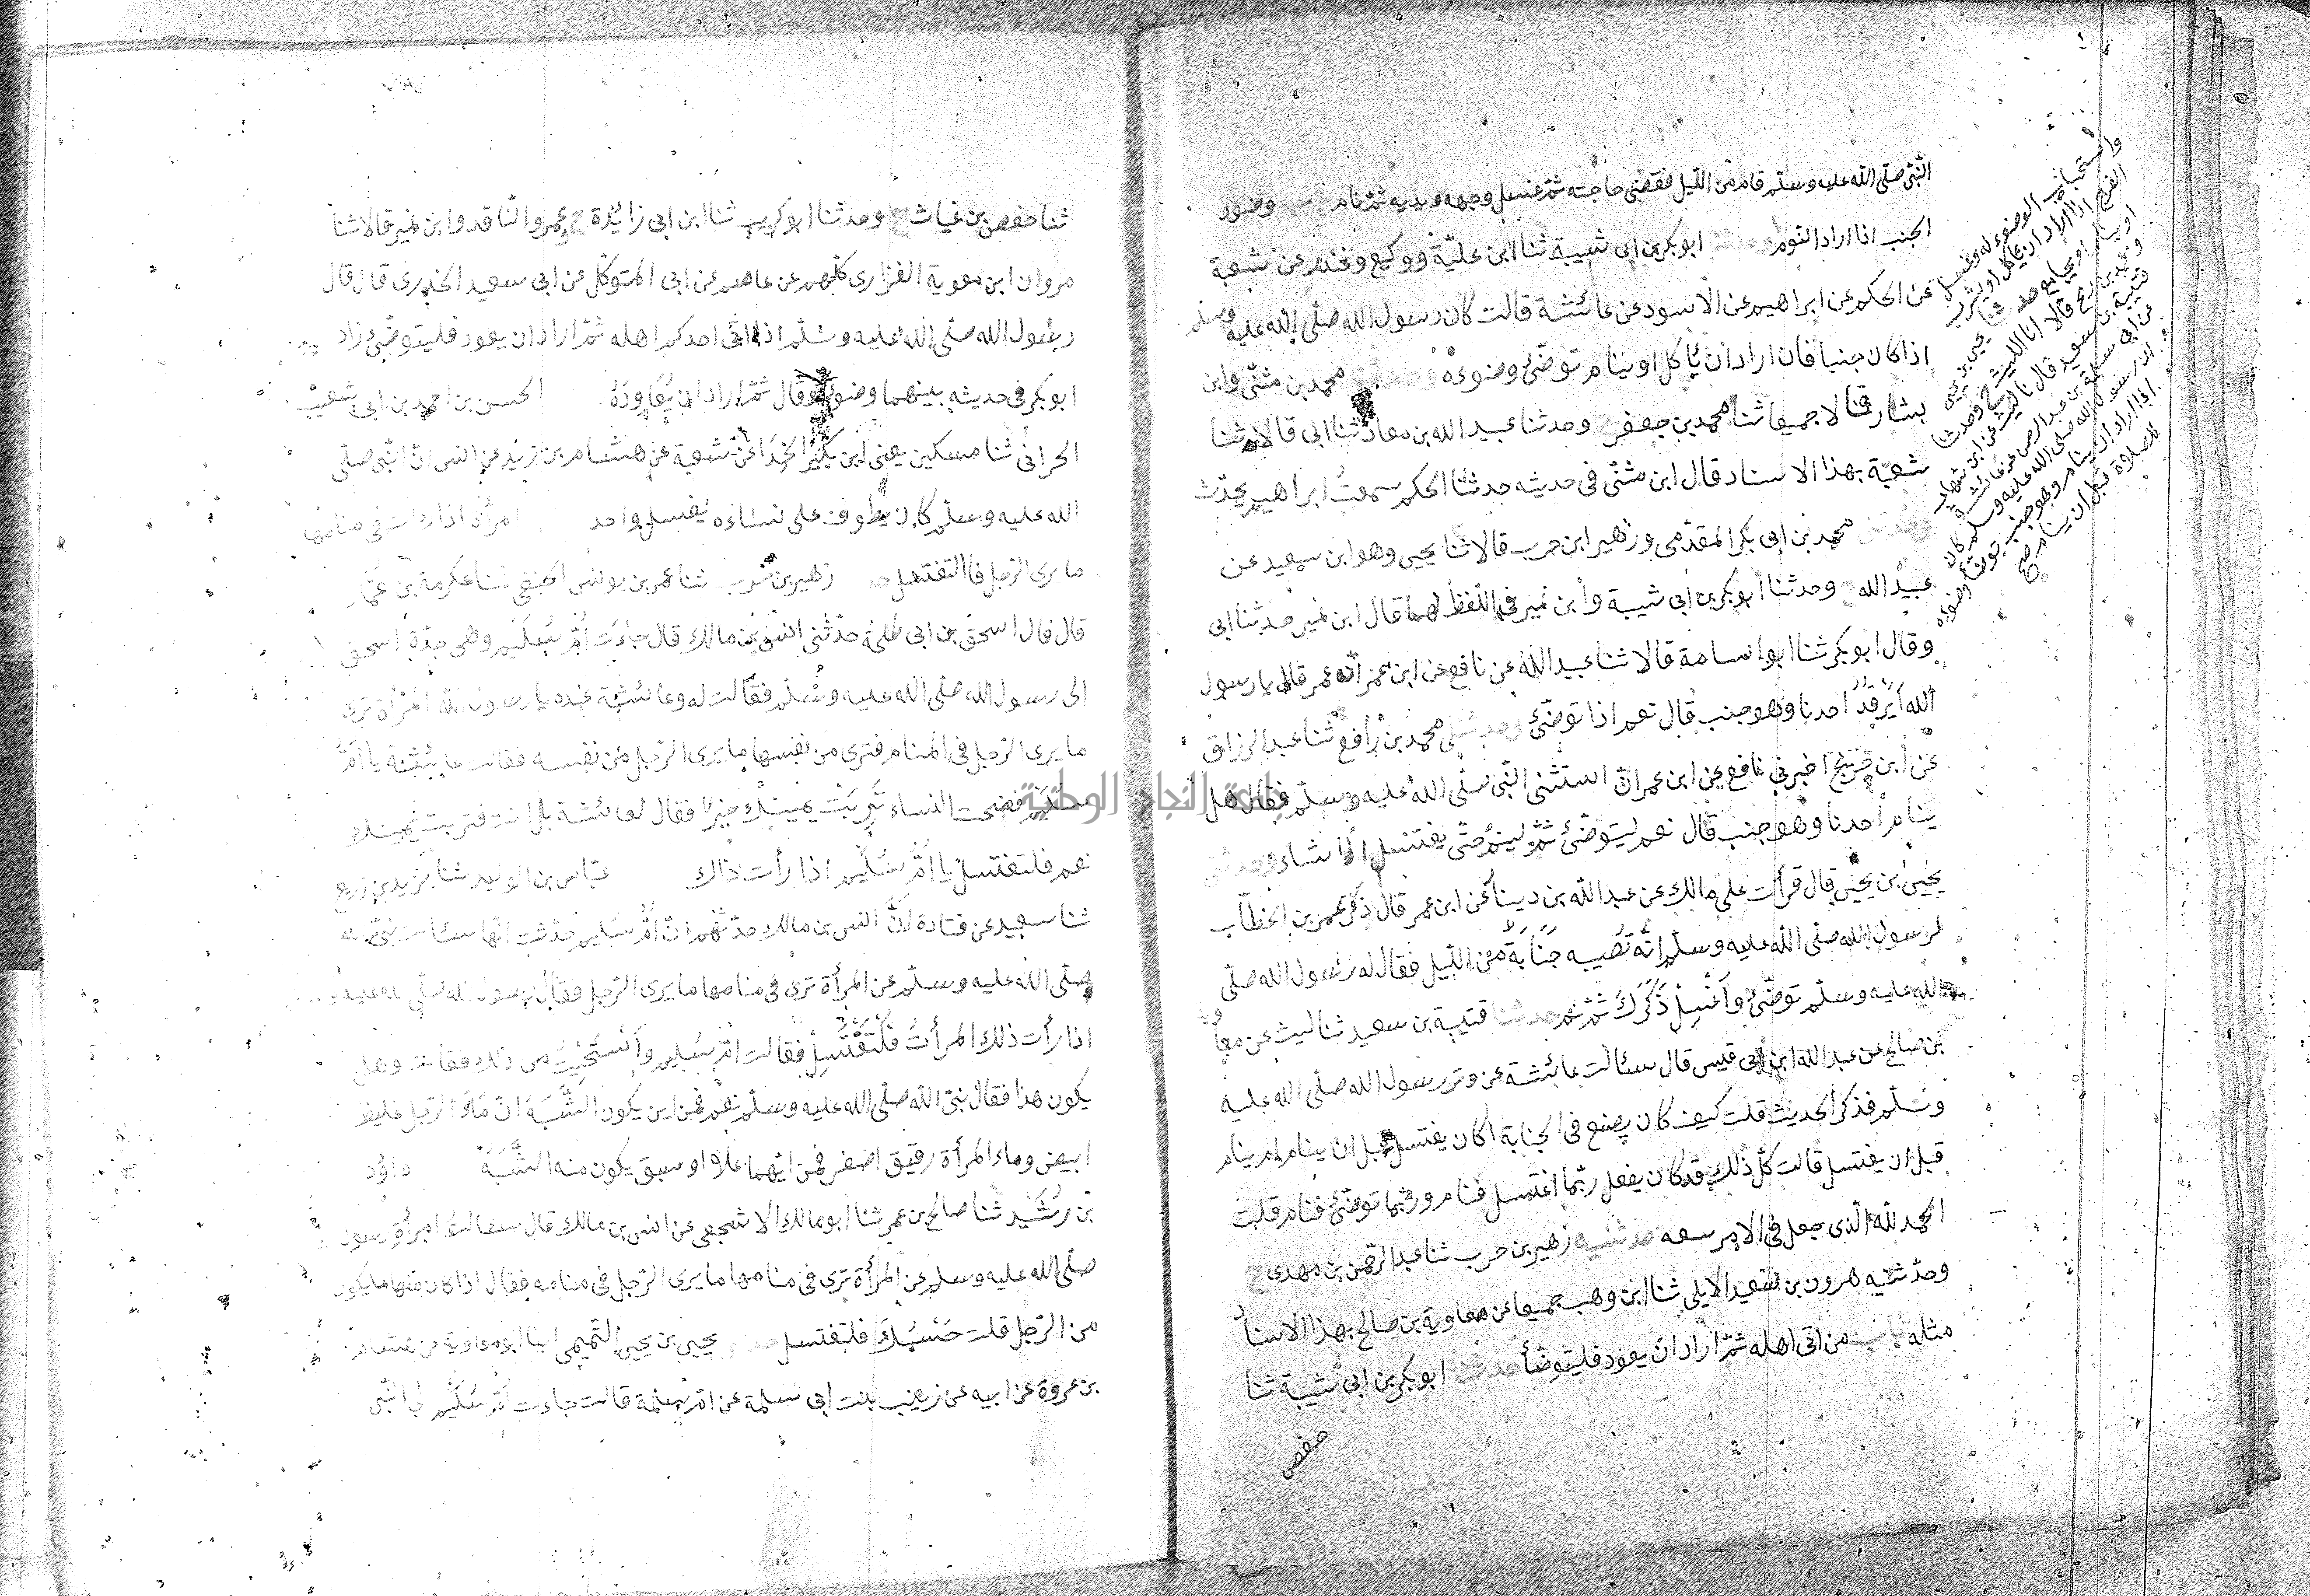 النّبيّ صلّى الله عليه وسلّم قام من اللّيل فقضى حاجته ثمّ غسل وجهه ويديه ثمّ نام باب وضوء
الجنب اذا اراد النوم وحدثنا ابو بكر بن ابى شيبة ثنا ابن عليّة ووكيع وغندر عن شعبة
عن الحكم عن ابراهيم عن الاسود عن عائشة قالت كان رسول الله صلّى الله عليه وسلم
اذا كان جنبا فان اراد ان يأكل او ينام توضّئ وضوءه وحدثنا محمد بن مثنّى وابن
بشار قالا جميعا ثنا محمد بن جعفر ح وحدثنا عبيد الله بن معاذ ثنا ابى قالا ثنا
شعبة بهذا الاسناد قال ابن مثنّى فى حديثه حدثنا الحكم سمعت ابراهيم يحدّث
وحدثنى محمد بن ابى بكر المقدّمى وزهير ابن حرب قالا ثنا يحيى وهو ابن سعيد عن
عبيد الله ح وحدثنا ابو بكر بن ابى شيبة وابن نمير فى اللّفظ لهما قال ابن نمير حدثنا ابى
وقال ابو بكر ثنا ابو اسامة قالا ثنا عبيد الله عن نافع عن ابن عمر انّ عمر قال يا رسول
الله ايرقد احدنا وهو جنب قال نعم اذا توضّئ وحدثنى محمد بن رافع ثنا عبد الرزاق
عن ابن جريج اخبرني نافع عن ابن عمر انّ استثنى النّبى صلّى الله عليه وسلّم فقال هل
ينام احدنا وهو جنب قال نعم ليتوضّئ ثمّ لينم حتّى يغتسل اذا شاء وحدثنى
يحيى بن يحيى قال قرأت على مالك عن عبد الله بن دينار عن ابن عمر قال ذكر عمر بن الخطّاب
لرسول الله صلّى الله عليه وسلّم انّه تصيبه جنابة من اللّيل فقال له رسول الله صلّى
الله عليه وسلّم توضّئ واغسل ذكرك ثمّ نم حدثنا قتيبة بن سعيد ثنا ليث عن معاوية
بن صالح عن عبد الله ابن ابى قيس قال سئالت عائشة عن وتر رسول الله صلّى الله عليه
وسلّم فذكر الحديث قلت كيف كان يصنع فى الجنابة اكان يغتسل قبل ان ينام ام ينام
قبل ان يغتسل قالت كلّ ذلك قد كان يفعل ربّما اغتسل فنام وربّما توضّئ فنام قلت
الحمد لله الّذى جعل فى الامر سعه حدثنيه زهير بن حرب ثنا عبد الرّحمن بن مهدى ح
وحدّثنيه هرون بن سعيد الايلى ثنا ابن وهب جميعا عن معاوية بن صالح بهذا الاسناد
مثله باب من اتى اهله ثمّ اراد ان يعود فليتوضّأ حدثنا ابو بكر بن ابى شيبة ثنا
حفص
واستحباب الوضوء له وغسل
الفرج اذا اراد ان يأكل او يشرب
او ينام او يجامع حدثنا يحيى بن يحيى
ومحمد بن رمح قالا انا الليث ح وحدثنا
قتيبة بن سعيد قال نا ليث عن ابن شهاب
عن ابى سلمة بن عبد الرحمن عن عائشة
ان رسول الله صلى الله عليه وسلم كان
اذا اراد ان ينام وهو جنب توضأ وضوءه
للصلاة قبل ان ينام صح
ثنا حفص بن غياث ح وحدثنا ابو كريب ثنا ابن ابى زائدة ح وعمرو النّاقد وابن نمير قالا ثنا
مروان ابن معوية الفزارى كلّهم عن عاصم عن ابى المتوكّل عن ابى سعيد الخدرى قال قال
رسول الله صلّى الله عليه وسلّم اذا اتى احدكم اهله ثمّ اراد ان يعود فليتوضّئ زاد
ابو بكر فى حديثه بينهما وضوءا وقال ثمّ اراد ان يعاوده الحسن بن احمد بن ابى شعيب
الحرانى ثنا مسكين يعنى ابن بكير الحذاء عن شعبة عن هشام بن زيد عن انس انّ النّبى صلّى
الله عليه وسلّم كان يطوف على نساءه بغسل واحد امرأة اذا رات فى منامها
ما يرى الرّجل فالتغتسل زهير بن حرب ثنا عمر بن يونس الحنفى ثنا عكرمة بن عمّار
قال قال اسحق بن ابى طلحة حدّثنى انس بن مالك قال جاءت امّ سليم وهى جدّة اسحق
الى رسول الله صلّى الله عليه وسلّم فقالت له وعائشة عنده يا رسول الله المرأة ترى
ما يرى الرّجل فى المنام فترى من نفسها ما يرى الرّجل من نفسه فقالت عائشة يا امّ
سليم فضحت النساء تربت يمينك خيرا فقال لعائشة بل انت فتربت يمينك
نعم فلتغتسل يا امّ سليم اذا رأت ذاك عبّاس بن الوليد ثنا يزيد بن زريع
ثنا سعيد عن قتادة انّ انس بن مالك حدّثهم انّ امّ سليم حدّثت انّها سئالت نبىّ الله
صلّى الله عليه وسلّم عن المرأة ترى فى منامها ما يرى الرّجل فقال رسول الله صلّى الله عليه و
اذا رأت ذلك المرأت فلتغتسل فقالت امّ سليم واستحييت من ذلك فقالت وهل
يكون هذا فقال نبىّ الله صلّى الله عليه وسلّم نعم فمن اين يكون الشّبه انّ ماء الرّجل غليظ
ابيض وماء المرأة رقيق اصفر فمن ايّهما علا او سبق يكون منه الشّبه داؤد
بن رشيد ثنا صالح بن عمر ثنا ابو مالك الاشجعى عن انس بن مالك قال سئالت امرأة رسول
صلّى الله عليه وسلم عن المرأة ترى فى منامها ما يرى الرّجل فى منامه فقال اذا كان منها ما يكون
من الرّجل قلت حسبك فلتغتسل يحيى بن يحيى التّميمى انبا ابو معاوية عن هشام
بن عروة عن ابيه عن زينب بنت ابى سلمة عن امّ سلمة قالت جاءت امّ سليم الى النّبى
جامعة النجاح الوطنية